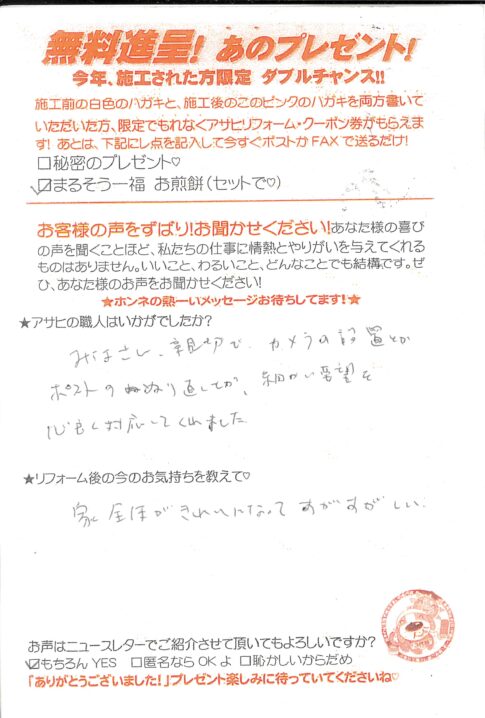 無料進呈! あのプレゼント!
今年、施工された方限定 ダブルチャンス!!
施工前の白色のハガキと、施工後のこのピンクのハガキを両方書いて
いただいた方、限定でもれなくアサヒリフォーム・クーポン券がもらえま
す! あとは、下記にレ点を記入して今すぐポストかFAXで送るだけ!
□秘密のプレゼント♡
☑まるそう一福 お煎餅(セットで♡)
お客様の声をずばり!お聞かせください!あなた様の喜び
の声を聞くことほど、私たちの仕事に情熱とやりがいを与えてくれる
ものはありません。いいこと、わるいこと、どんなことでも結構です。ぜ
ひ、あなた様のお声をお聞かせください!
★ホンネの熱ーいメッセージお待ちしてます!★
★アサヒの職人はいかがでしたか?
みなさん、親切で、カメラの設置とか
ポストのぬり直しとか、細かい要望を
心良く対応してくれました
★リフォーム後の今のお気持ちを教えて♡
家全体がきれいになってすがすがしい.
お声はニュースレターでご紹介させて頂いてもよろしいですか?
☑もちろんYES □匿名ならOKよ □恥かしいからだめ
「ありがとうございました!」プレゼント楽しみに待っていてくださいね♡